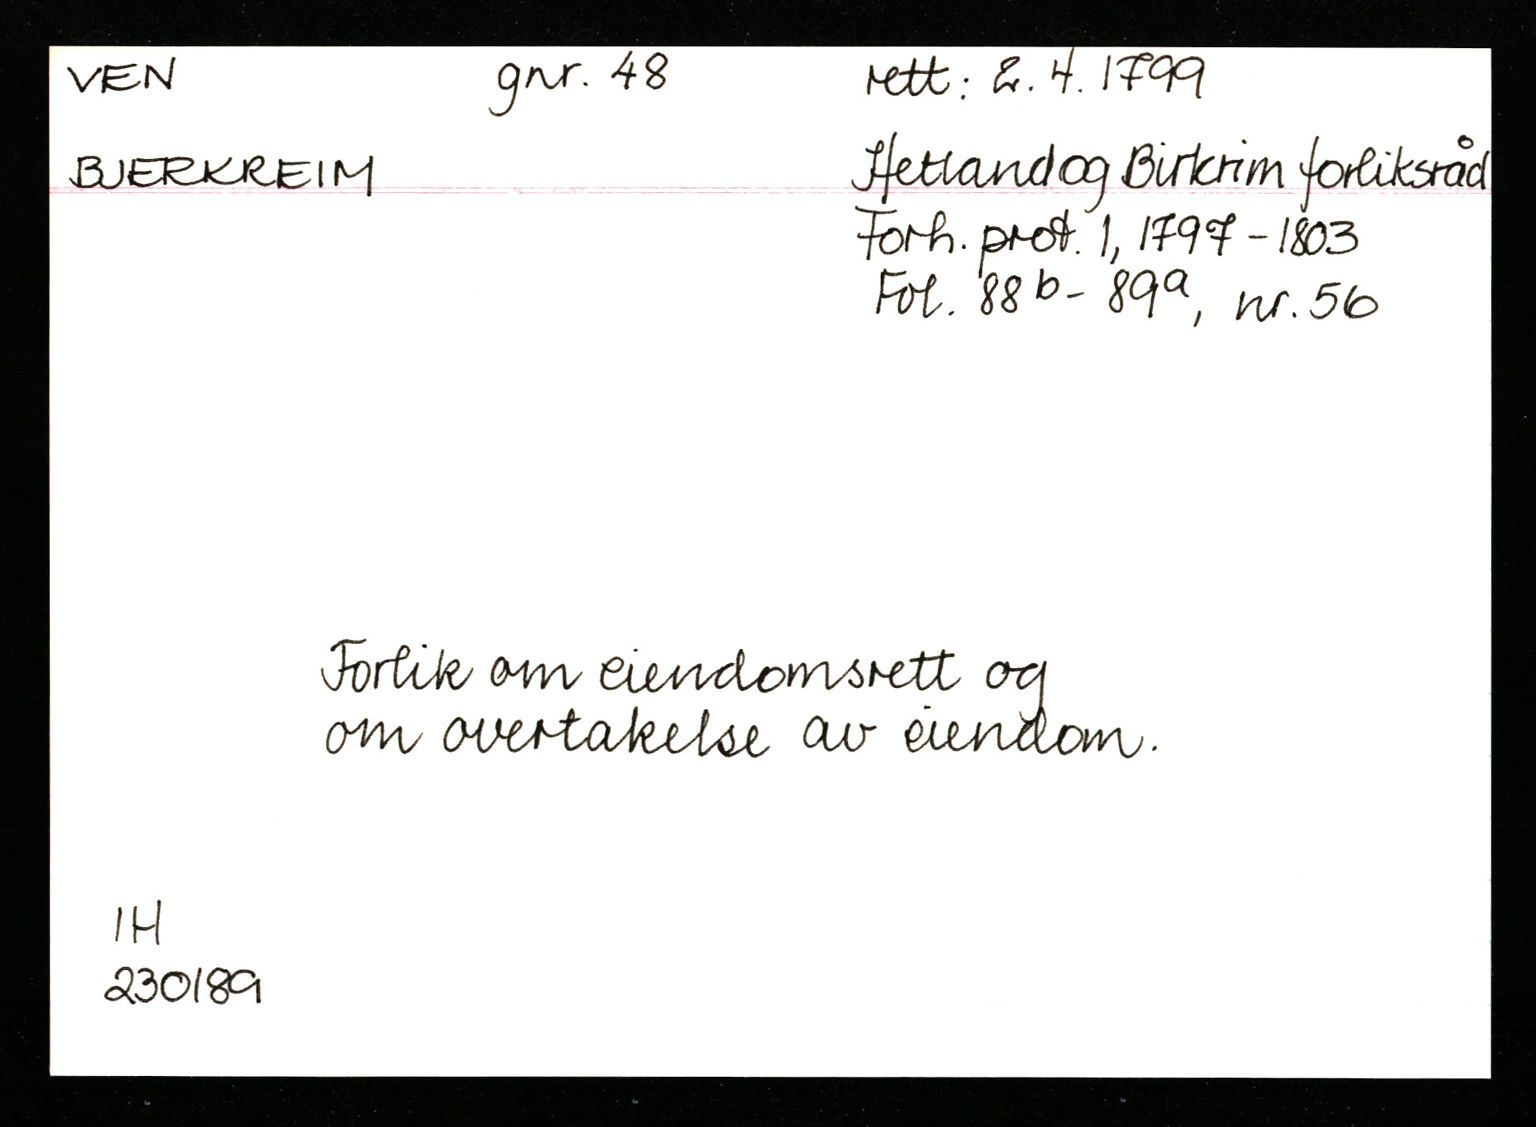 VEN gnr. 48 rett: 2. 4. 1799
BJERKREIM Hetland og Birkrim forliksråd
Forh. prot. 1, 1797 - 1803
Fol. 88 b - 89 a, nr. 56
Forlik om eiendomsrett og
om overtakelse av eiendom.
IH
230189